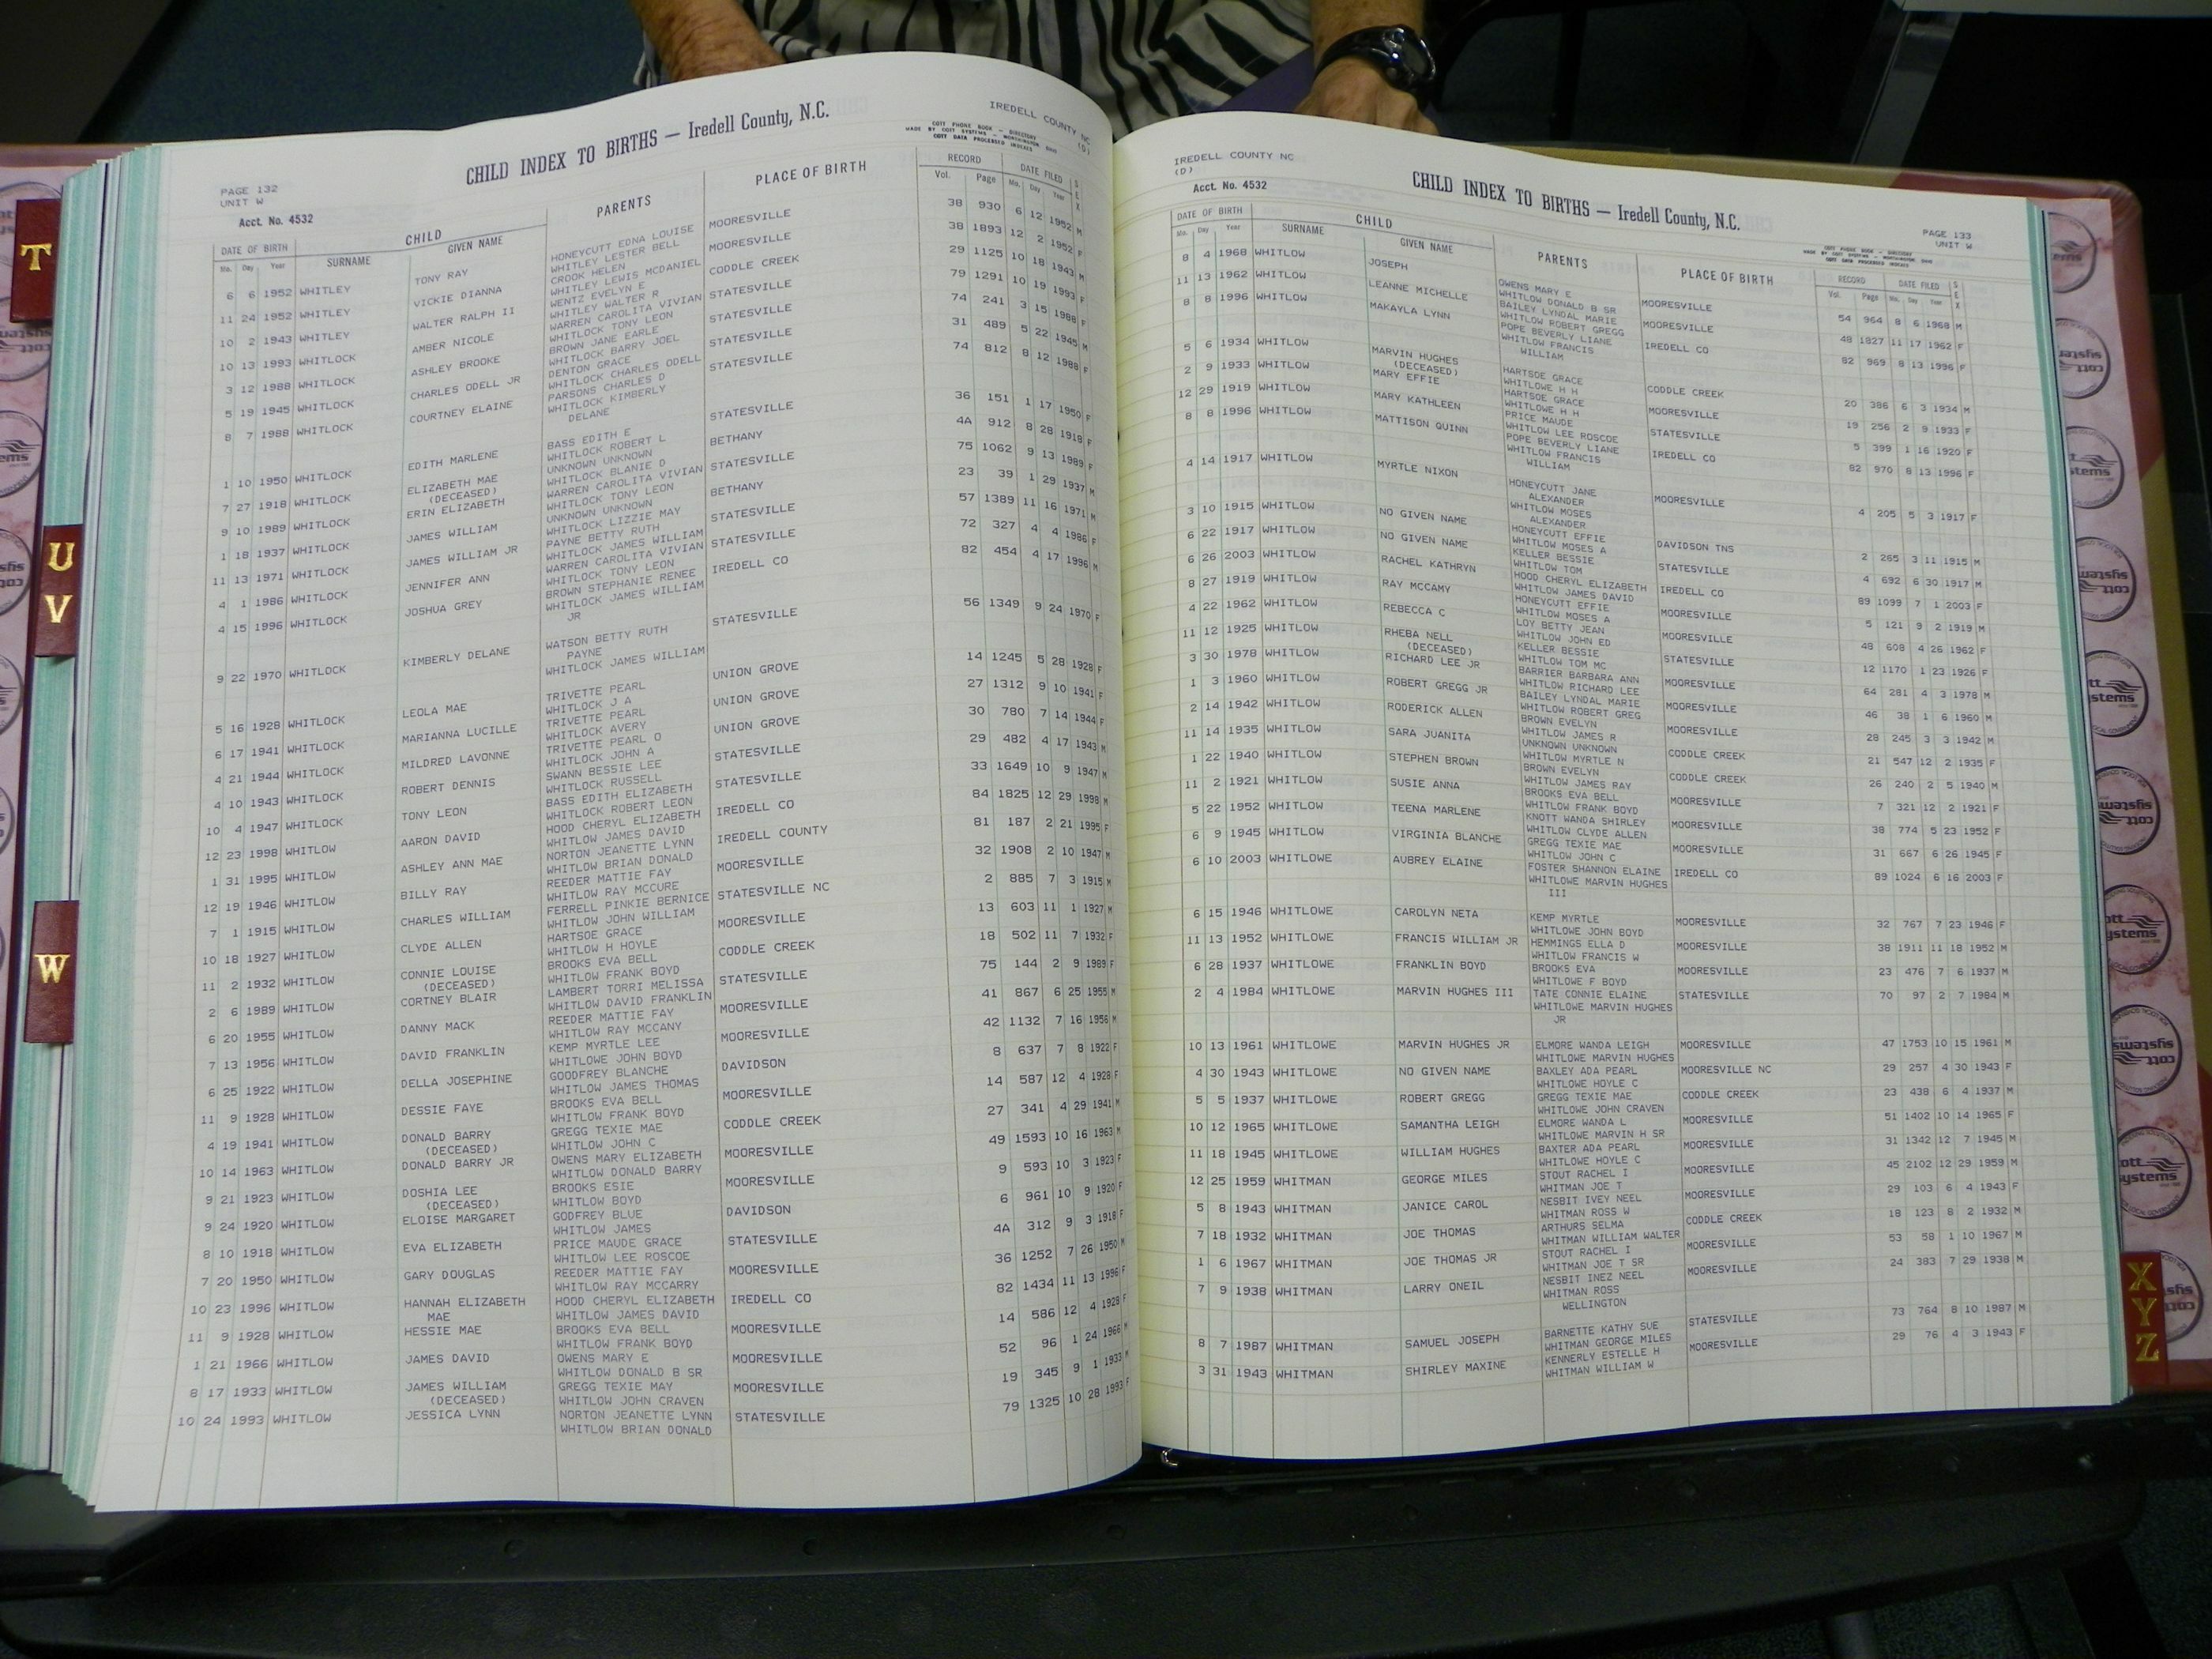 PAGE 132
UNIT W
CHILD INDEX TO BIRTHS — Iredell County, N.C.
IREDELL COUNTY NC
(D)
COTT PHONE BOOK - DIRECTORY
MADE BY COTT SYSTEMS - WORTHINGTON OHIO
COTT DATA PROCESSED INDEXES
Acct. No. 4532
DATE OF BIRTH CHILD PARENTS PLACE OF BIRTH RECORD DATE FILED SEX
Mo. Day Year SURNAME GIVEN NAME Vol. Page Mo. Day Year
6 6 1952 WHITLEY TONY RAY HONEYCUTT EDNA LOUISE MOORESVILLE 38 930 6 12 1952 M
WHITLEY LESTER BELL
11 24 1952 WHITLEY VICKIE DIANNA CROOK HELEN MOORESVILLE 38 1893 12 2 1952 F
WHITLEY LEWIS MCDANIEL
10 2 1943 WHITLEY WALTER RALPH II WENTZ EVELYN E CODDLE CREEK 29 1125 10 18 1943 M
WHITLEY WALTER R
10 13 1993 WHITLOCK AMBER NICOLE WARREN CAROLITA VIVIAN STATESVILLE 79 1291 10 19 1993 F
WHITLOCK TONY LEON
3 12 1988 WHITLOCK ASHLEY BROOKE BROWN JANE EARLE STATESVILLE 74 241 3 15 1988 F
WHITLOCK BARRY JOEL
5 19 1945 WHITLOCK CHARLES ODELL JR DENTON GRACE STATESVILLE 31 489 5 22 1945 M
WHITLOCK CHARLES ODELL
8 7 1988 WHITLOCK COURTNEY ELAINE PARSONS CHARLES D STATESVILLE 74 812 8 12 1988 F
WHITLOCK KIMBERLY
DELANE
1 10 1950 WHITLOCK EDITH MARLENE BASS EDITH E STATESVILLE 36 151 1 17 1950 F
WHITLOCK ROBERT L
7 27 1918 WHITLOCK ELIZABETH MAE UNKNOWN UNKNOWN BETHANY 4A 912 8 28 1918 F
(DECEASED) WHITLOCK BLANIE D
9 10 1989 WHITLOCK ERIN ELIZABETH WARREN CAROLITA VIVIAN STATESVILLE 75 1062 9 13 1989 F
WHITLOCK TONY LEON
1 18 1937 WHITLOCK JAMES WILLIAM UNKNOWN UNKNOWN BETHANY 23 39 1 29 1937 M
WHITLOCK LIZZIE MAY
11 13 1971 WHITLOCK JAMES WILLIAM JR PAYNE BETTY RUTH STATESVILLE 57 1389 11 16 1971 M
WHITLOCK JAMES WILLIAM
4 1 1986 WHITLOCK JENNIFER ANN WARREN CAROLITA VIVIAN STATESVILLE 72 327 4 4 1986 F
WHITLOCK TONY LEON
4 15 1996 WHITLOCK JOSHUA GREY BROWN STEPHANIE RENEE IREDELL CO 82 454 4 17 1996 M
WHITLOCK JAMES WILLIAM
JR
9 22 1970 WHITLOCK KIMBERLY DELANE WATSON BETTY RUTH STATESVILLE 56 1349 9 24 1970 F
PAYNE
WHITLOCK JAMES WILLIAM
5 16 1928 WHITLOCK LEOLA MAE TRIVETTE PEARL UNION GROVE 14 1245 5 28 1928 F
WHITLOCK J A
6 17 1941 WHITLOCK MARIANNA LUCILLE TRIVETTE PEARL UNION GROVE 27 1312 9 10 1941 F
WHITLOCK AVERY
4 21 1944 WHITLOCK MILDRED LAVONNE TRIVETTE PEARL O UNION GROVE 30 780 7 14 1944 F
WHITLOCK JOHN A
4 10 1943 WHITLOCK ROBERT DENNIS SWANN BESSIE LEE STATESVILLE 29 482 4 17 1943 M
WHITLOCK RUSSELL
10 4 1947 WHITLOCK TONY LEON BASS EDITH ELIZABETH STATESVILLE 33 1649 10 9 1947 M
WHITLOCK ROBERT LEON
12 23 1998 WHITLOW AARON DAVID HOOD CHERYL ELIZABETH IREDELL CO 84 1825 12 29 1998 M
WHITLOW JAMES DAVID
1 31 1995 WHITLOW ASHLEY ANN MAE NORTON JEANETTE LYNN IREDELL COUNTY 81 187 2 21 1995 F
WHITLOW BRIAN DONALD
12 19 1946 WHITLOW BILLY RAY REEDER MATTIE FAY MOORESVILLE 32 1908 2 10 1947 M
WHITLOW RAY MCCURE
7 1 1915 WHITLOW CHARLES WILLIAM FERRELL PINKIE BERNICE STATESVILLE NC 2 885 7 3 1915 M
WHITLOW JOHN WILLIAM
10 18 1927 WHITLOW CLYDE ALLEN HARTSOE GRACE MOORESVILLE 13 603 11 1 1927 M
WHITLOW H HOYLE
11 2 1932 WHITLOW CONNIE LOUISE BROOKS EVA BELL CODDLE CREEK 18 502 11 7 1932 F
(DECEASED) WHITLOW FRANK BOYD
2 6 1989 WHITLOW CORTNEY BLAIR LAMBERT TORRI MELISSA STATESVILLE 75 144 2 9 1989 F
WHITLOW DAVID FRANKLIN
6 20 1955 WHITLOW DANNY MACK REEDER MATTIE FAY MOORESVILLE 41 867 6 25 1955 M
WHITLOW RAY MCCANY
7 13 1956 WHITLOW DAVID FRANKLIN KEMP MYRTLE LEE MOORESVILLE 42 1132 7 16 1956 M
WHITLOWE JOHN BOYD
6 25 1922 WHITLOW DELLA JOSEPHINE GOODFREY BLANCHE DAVIDSON 8 637 7 8 1922 F
WHITLOW JAMES THOMAS
11 9 1928 WHITLOW DESSIE FAYE BROOKS EVA BELL MOORESVILLE 14 587 12 4 1928 F
WHITLOW FRANK BOYD
4 19 1941 WHITLOW DONALD BARRY GREGG TEXIE MAE CODDLE CREEK 27 341 4 29 1941 M
(DECEASED) WHITLOW JOHN C
10 14 1963 WHITLOW DONALD BARRY JR OWENS MARY ELIZABETH MOORESVILLE 49 1593 10 16 1963 M
WHITLOW DONALD BARRY
9 21 1923 WHITLOW DOSHIA LEE BROOKS ESIE MOORESVILLE 9 593 10 3 1923 F
(DECEASED) WHITLOW BOYD
9 24 1920 WHITLOW ELOISE MARGARET GODFREY BLUE DAVIDSON 6 961 10 9 1920 F
WHITLOW JAMES
8 10 1918 WHITLOW EVA ELIZABETH PRICE MAUDE GRACE STATESVILLE 4A 312 9 3 1918 F
WHITLOW LEE ROSCOE
7 20 1950 WHITLOW GARY DOUGLAS REEDER MATTIE FAY MOORESVILLE 36 1252 7 26 1950 M
WHITLOW RAY MCCARRY
10 23 1996 WHITLOW HANNAH ELIZABETH HOOD CHERYL ELIZABETH IREDELL CO 82 1434 11 13 1996 F
MAE WHITLOW JAMES DAVID
11 9 1928 WHITLOW HESSIE MAE BROOKS EVA BELL MOORESVILLE 14 586 12 4 1928 F
WHITLOW FRANK BOYD
1 21 1966 WHITLOW JAMES DAVID OWENS MARY E MOORESVILLE 52 96 1 24 1966 M
WHITLOW DONALD B SR
8 17 1933 WHITLOW JAMES WILLIAM GREGG TEXIE MAY MOORESVILLE 19 345 9 1 1933 M
(DECEASED) WHITLOW JOHN CRAVEN
10 24 1993 WHITLOW JESSICA LYNN NORTON JEANETTE LYNN STATESVILLE 79 1325 10 28 1993 F
WHITLOW BRIAN DONALD
IREDELL COUNTY NC
(D)
CHILD INDEX TO BIRTHS — Iredell County, N.C.
PAGE 133
UNIT W
Acct. No. 4532
COTT PHONE BOOK - DIRECTORY
MADE BY COTT SYSTEMS - WORTHINGTON OHIO
COTT DATA PROCESSED INDEXES
DATE OF BIRTH CHILD PARENTS PLACE OF BIRTH RECORD DATE FILED SEX
Mo. Day Year SURNAME GIVEN NAME Vol. Page Mo. Day Year
8 4 1968 WHITLOW JOSEPH OWENS MARY E MOORESVILLE 54 964 8 6 1968 M
WHITLOW DONALD B SR
11 13 1962 WHITLOW LEANNE MICHELLE BAILEY LYNDAL MARIE MOORESVILLE 48 1827 11 17 1962 F
WHITLOW ROBERT GREGG
8 8 1996 WHITLOW MAKAYLA LYNN POPE BEVERLY LIANE IREDELL CO 82 969 8 13 1996 F
WHITLOW FRANCIS
WILLIAM
5 6 1934 WHITLOW MARVIN HUGHES HARTSOE GRACE CODDLE CREEK 20 386 6 3 1934 M
(DECEASED) WHITLOWE H H
2 9 1933 WHITLOW MARY EFFIE HARTSOE GRACE MOORESVILLE 19 256 2 9 1933 F
WHITLOWE H H
12 29 1919 WHITLOW MARY KATHLEEN PRICE MAUDE STATESVILLE 5 399 1 16 1920 F
WHITLOW LEE ROSCOE
8 8 1996 WHITLOW MATTISON QUINN POPE BEVERLY LIANE IREDELL CO 82 970 8 13 1996 F
WHITLOW FRANCIS
WILLIAM
4 14 1917 WHITLOW MYRTLE NIXON HONEYCUTT JANE MOORESVILLE 4 205 5 3 1917 F
ALEXANDER
WHITLOW MOSES
ALEXANDER
3 10 1915 WHITLOW NO GIVEN NAME HONEYCUTT EFFIE DAVIDSON TNS 2 265 3 11 1915 M
WHITLOW MOSES A
6 22 1917 WHITLOW NO GIVEN NAME KELLER BESSIE STATESVILLE 4 692 6 30 1917 M
WHITLOW TOM
6 26 2003 WHITLOW RACHEL KATHRYN HOOD CHERYL ELIZABETH IREDELL CO 89 1099 7 1 2003 F
WHITLOW JAMES DAVID
8 27 1919 WHITLOW RAY MCCAMY HONEYCUTT EFFIE MOORESVILLE 5 121 9 2 1919 M
WHITLOW MOSES A
4 22 1962 WHITLOW REBECCA C LOY BETTY JEAN MOORESVILLE 48 608 4 26 1962 F
WHITLOW JOHN ED
11 12 1925 WHITLOW RHEBA NELL KELLER BESSIE STATESVILLE 12 1170 1 23 1926 F
(DECEASED) WHITLOW TOM MC
3 30 1978 WHITLOW RICHARD LEE JR BARRIER BARBARA ANN MOORESVILLE 64 281 4 3 1978 M
WHITLOW RICHARD LEE
1 3 1960 WHITLOW ROBERT GREGG JR BAILEY LYNDAL MARIE MOORESVILLE 46 38 1 6 1960 M
WHITLOW ROBERT GREG
2 14 1942 WHITLOW RODERICK ALLEN BROWN EVELYN MOORESVILLE 28 245 3 3 1942 M
WHITLOW JAMES R
11 14 1935 WHITLOW SARA JUANITA UNKNOWN UNKNOWN CODDLE CREEK 21 547 12 2 1935 F
WHITLOW MYRTLE N
1 22 1940 WHITLOW STEPHEN BROWN BROWN EVELYN CODDLE CREEK 26 240 2 5 1940 M
WHITLOW JAMES RAY
11 2 1921 WHITLOW SUSIE ANNA BROOKS EVA BELL MOORESVILLE 7 321 12 2 1921 F
WHITLOW FRANK BOYD
5 22 1952 WHITLOW TEENA MARLENE KNOTT WANDA SHIRLEY MOORESVILLE 38 774 5 23 1952 F
WHITLOW CLYDE ALLEN
6 9 1945 WHITLOW VIRGINIA BLANCHE GREGG TEXIE MAE MOORESVILLE 31 667 6 26 1945 F
WHITLOW JOHN C
6 10 2003 WHITLOWE AUBREY ELAINE FOSTER SHANNON ELAINE IREDELL CO 89 1024 6 16 2003 F
WHITLOWE MARVIN HUGHES
III
6 15 1946 WHITLOWE CAROLYN NETA KEMP MYRTLE MOORESVILLE 32 767 7 23 1946 F
WHITLOWE JOHN BOYD
11 13 1952 WHITLOWE FRANCIS WILLIAM JR HEMMINGS ELLA D MOORESVILLE 38 1911 11 18 1952 M
WHITLOW FRANCIS W
6 28 1937 WHITLOWE FRANKLIN BOYD BROOKS EVA MOORESVILLE 23 476 7 6 1937 M
WHITLOWE F BOYD
2 4 1984 WHITLOWE MARVIN HUGHES III TATE CONNIE ELAINE STATESVILLE 70 97 2 7 1984 M
WHITLOWE MARVIN HUGHES
JR
10 13 1961 WHITLOWE MARVIN HUGHES JR ELMORE WANDA LEIGH MOORESVILLE 47 1753 10 15 1961 M
WHITLOWE MARVIN HUGHES
4 30 1943 WHITLOWE NO GIVEN NAME BAXLEY ADA PEARL MOORESVILLE NC 29 257 4 30 1943 F
WHITLOWE HOYLE C
5 5 1937 WHITLOWE ROBERT GREGG GREGG TEXIE MAE CODDLE CREEK 23 438 6 4 1937 M
WHITLOWE JOHN CRAVEN
10 12 1965 WHITLOWE SAMANTHA LEIGH ELMORE WANDA L MOORESVILLE 51 1402 10 14 1965 F
WHITLOWE MARVIN H SR
11 18 1945 WHITLOWE WILLIAM HUGHES BAXTER ADA PEARL MOORESVILLE 31 1342 12 7 1945 M
WHITLOWE HOYLE C
12 25 1959 WHITMAN GEORGE MILES STOUT RACHEL I MOORESVILLE 45 2102 12 29 1959 M
WHITMAN JOE T
5 8 1943 WHITMAN JANICE CAROL NESBIT IVEY NEEL MOORESVILLE 29 103 6 4 1943 F
WHITMAN ROSS W
7 18 1932 WHITMAN JOE THOMAS ARTHURS SELMA CODDLE CREEK 18 123 8 2 1932 M
WHITMAN WILLIAM WALTER
1 6 1967 WHITMAN JOE THOMAS JR STOUT RACHEL I MOORESVILLE 53 58 1 10 1967 M
WHITMAN JOE T SR
7 9 1938 WHITMAN LARRY ONEIL NESBIT INEZ NEEL MOORESVILLE 24 383 7 29 1938 M
WHITMAN ROSS
WELLINGTON
8 7 1987 WHITMAN SAMUEL JOSEPH BARNETTE KATHY SUE STATESVILLE 73 764 8 10 1987 M
WHITMAN GEORGE MILES
3 31 1943 WHITMAN SHIRLEY MAXINE KENNERLY ESTELLE H MOORESVILLE 29 76 4 3 1943 F
WHITMAN WILLIAM W
T
U
V
W
X
Y
Z
cott
systems